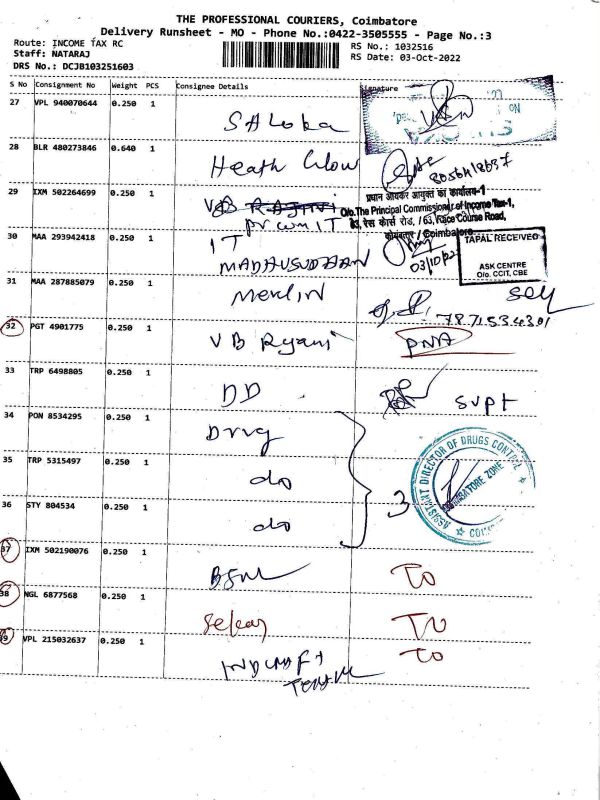 THE PROFESSIONAL COURIERS, Coimbatore
Delivery Runsheet - MO - Phone No.:0422-3505555 - Page No.:3
Route: INCOME TAX RC
RS No.: 1032516
Staff: NATARAJ
RS Date: 03-Oct-2022
DRS No.: DCJB103251603
S No Consignment No Weight PCS Consignee Details Signature
27 VPL 940070644 0.250 1
28 BLR 480273846 0.640 1
Heath
29 IXM 502264699 0.250 1
VB
प्रधान आयकर आयुक्त का कार्यालय-1
O/o.The Principal Commissioner of Income Tax-1,
63, रेस कोर्स रोड, / 63, Race Course Road,
कोयंबतूर / Coimbatore
30 MAA 293942418 0.250 1
IT
03/10/22
TAPAL RECEIVED
ASK CENTRE
O/o. CCIT, CBE
31 MAA 287885079 0.250 1
Merlin
7871534301
32 PGT 4901775 0.250 1
VB
33 TRP 6498805 0.250 1
DD
Supt
34 PON 8534295 0.250 1
Drug
35 TRP 5315497 0.250 1
do
3
ASSISTANT DIRECTOR OF DRUGS CONTROL
COIMBATORE ZONE
36 STY 804534 0.250 1
do
37 IXM 502190076 0.250 1
TO
38 NGL 6877568 0.250 1
39 VPL 215032637 0.250 1
TO